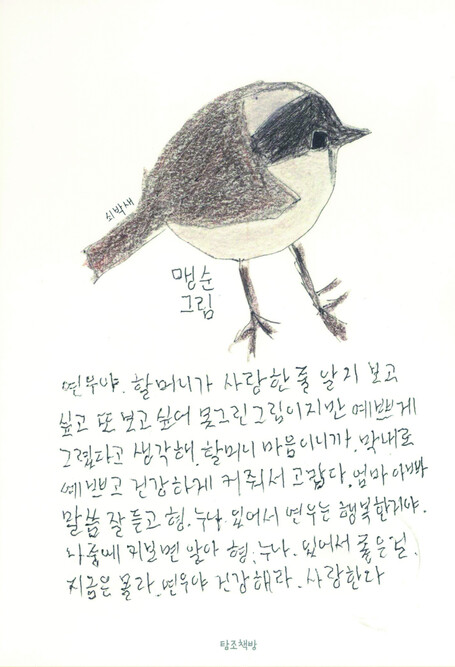 쇠박새
맹순
그림
연우야. 할머니가 사랑한줄 알지 보고
싶고 또 보고 싶어 못그린그림이지만 예쁘게
그렸다고 생각해. 할머니 마음이니까. 막내로
예쁘고 건강하게 커줘서 고맙다. 엄마 아빠
말씀 잘 듣고 형. 누나. 있어서 연우는 행복한거야.
나중에 커보면 알아 형. 누나. 있어서 좋은걸.
지금은 몰라. 연우야 건강해라. 사랑한다
탐조책방